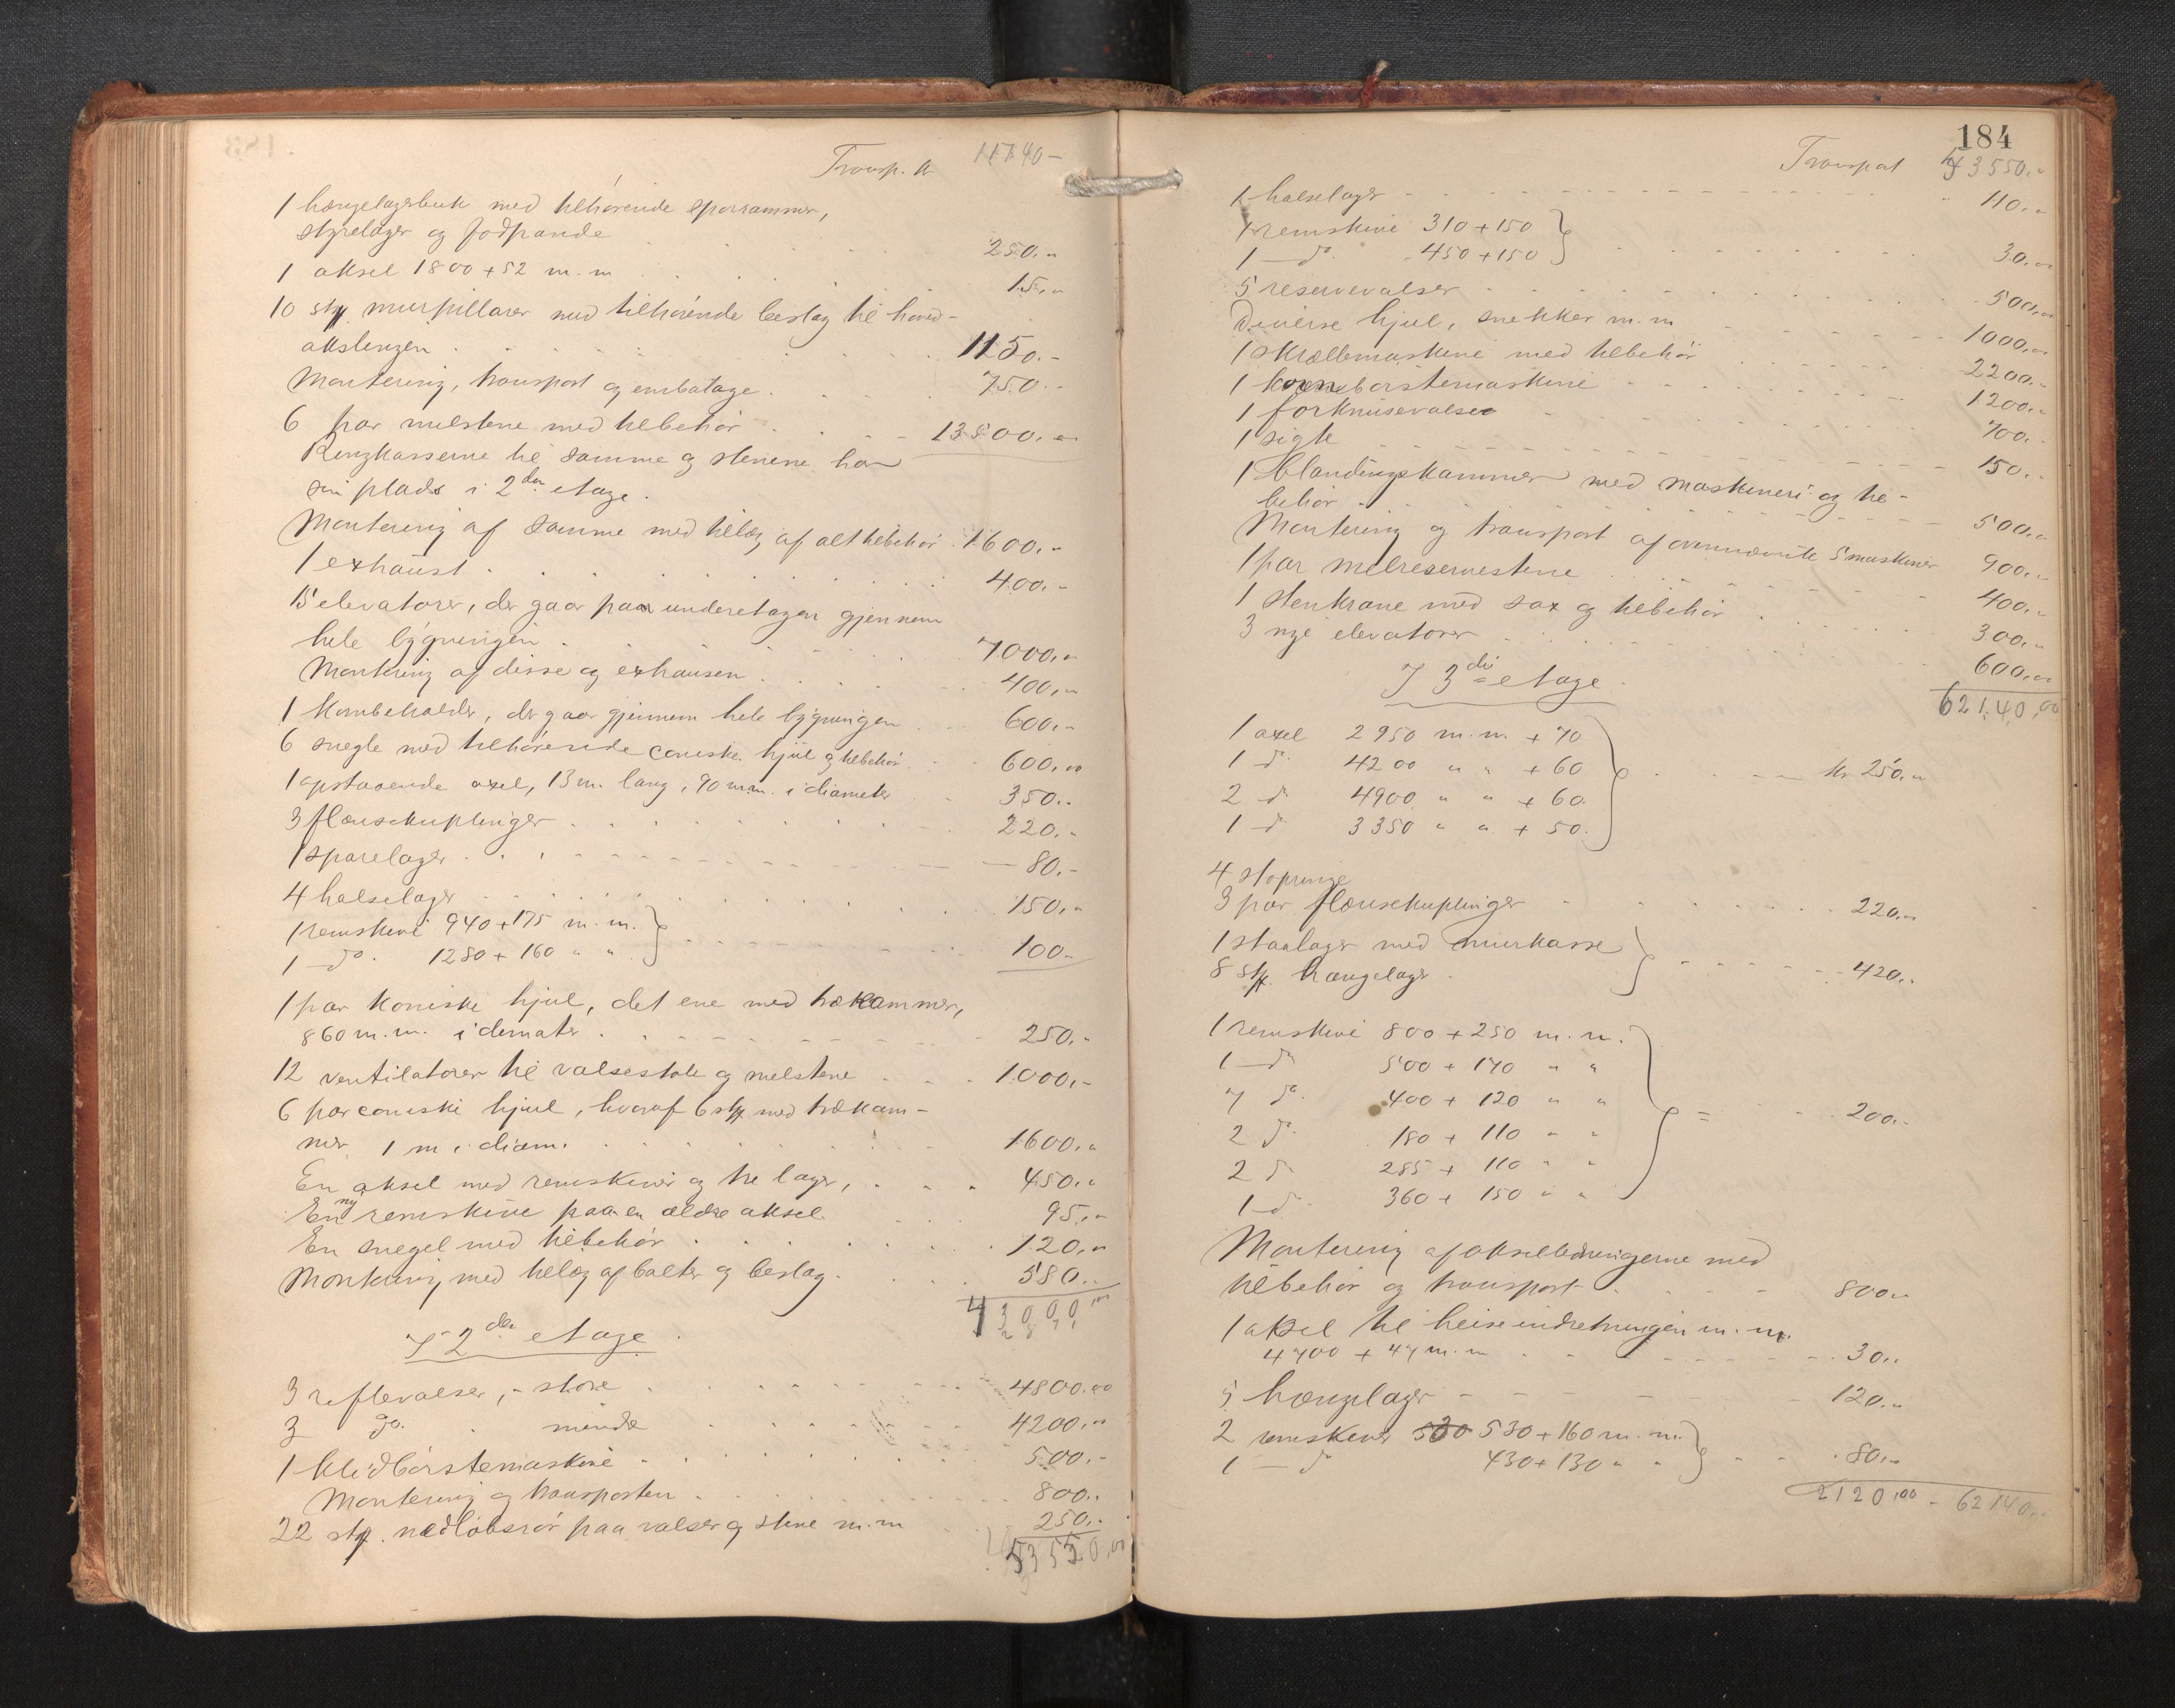 Transp. kr 11740 -
1 hængelagerbuk med tilhørende sporrammer,
styrelager og fodpande 250.-
1 aksel 1800 + 52 m.m 15.-
10 stk. murpillarer med tilhørende beslag til hoved-
akslingen 1150.-
Montering, transport og embalage 750.-
6 par melstene med tilbehør 13800.-
Ringkasserne til samme og stenene har
sin plads i 2den etage.
Montering af samme med tillæg af alt tilbehør 1600.-
1 exhaust 400.-
15 elevatorer, der gaar paa underetagen gjennem
hele bygningen 7000.-
Montering af disse og exhausen 400.-
1 Kornbeholder, der gaar gjennem hele bygningen 600.-
6 snegle med tilhørende coniske hjul og tilbehør 600.-
1 opstaaende axel, 13 m. lang, 90 m.m. i diameter 350.-
3 flansekuplinger 220.-
1 sporelager 80.-
4 halselager 150.-
1 remskive 940 + 175 m.m.
1 do. 1280 + 160 " " 100.-
1 par koniske hjul, det ene med trækammer,
860 m.m. i diameter 250.-
12 ventilatorer til valsestole og melstene 1000.-
6 par coniske hjul, hvoraf 6 stk med trækam-
mer 1 m i diam. 1600.-
En aksel med remskiver og tre lager, 450.-
En ny remskive paa en ældre aksel 95.-
En snegel med tilbehør 120.-
Montering med tillæg af bolter og beslag 580.-
43000,00
I 2den etage.
3 riflevalser, - store 4800.00
3 do. mindre 4200.-
1 Klidbørstemaskine 500.-
Montering og transporten 800.-
22 stk. nedløbsrør paa valser og stene m.m 250.-
53550,00
184
Transport 53550.-
1 halselager 110.-
1 remskive 310 + 150
1 do. 450 + 150 30.-
5 reservevalser 500.-
Diverse hjul, snekker m.m 1000.-
1 skrællemaskine med tilbehør 2200.-
1 kornbørstemaskine 1200.-
1 forknusevalse 700.-
1 sigte 150.-
1 Blandingskammer med maskineri og til-
behør 500.-
Montering og transport af ovennævnte 5 maskiner 900.-
1 par melreservestene 400.-
1 stenkrane med sax og tilbehør 300.-
3 nye elevatorer 600.-
62140,00
I 3die etage.
1 axel 2950 m.m + 70
1 do. 4200 " " + 60 kr 250.-
2 do 4900 " " + 60.
1 do 3350 " " + 50.
4 stopringe
3 par flansekuplinger 220.-
1 staalager med murkasse
8 stk. hængelager 420.-
1 remskive 800 + 250 m.m.
1 do 500 + 170 " "
7 do. 400 + 120 " "
2 do. 180 + 110 " " 200.-
2 do 285 + 110 " "
1 do 360 + 150 " "
Montering af akselledningerne med
tilbehør og transport 800.-
1 aksel til heiseindretningen m.m.
4700 + 47 m.m 30.-
5 hængelager 120.-
2 remskiver 530 + 160 m.m.
1 do 430 + 130 " " 80.-
2120,00 - 62140.-